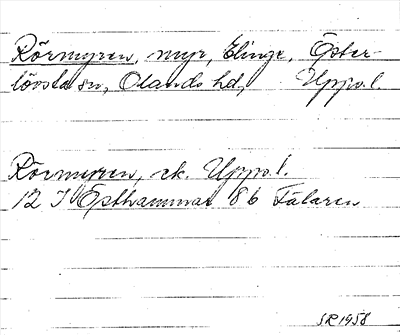 Rörmyren, myr, Elinge, Öster-
lövsta sn, Olands hd, Upps. l.
Rörmyren, ek. Upps. l.
12 I Östhammar 8b Fälaren
SR 1958